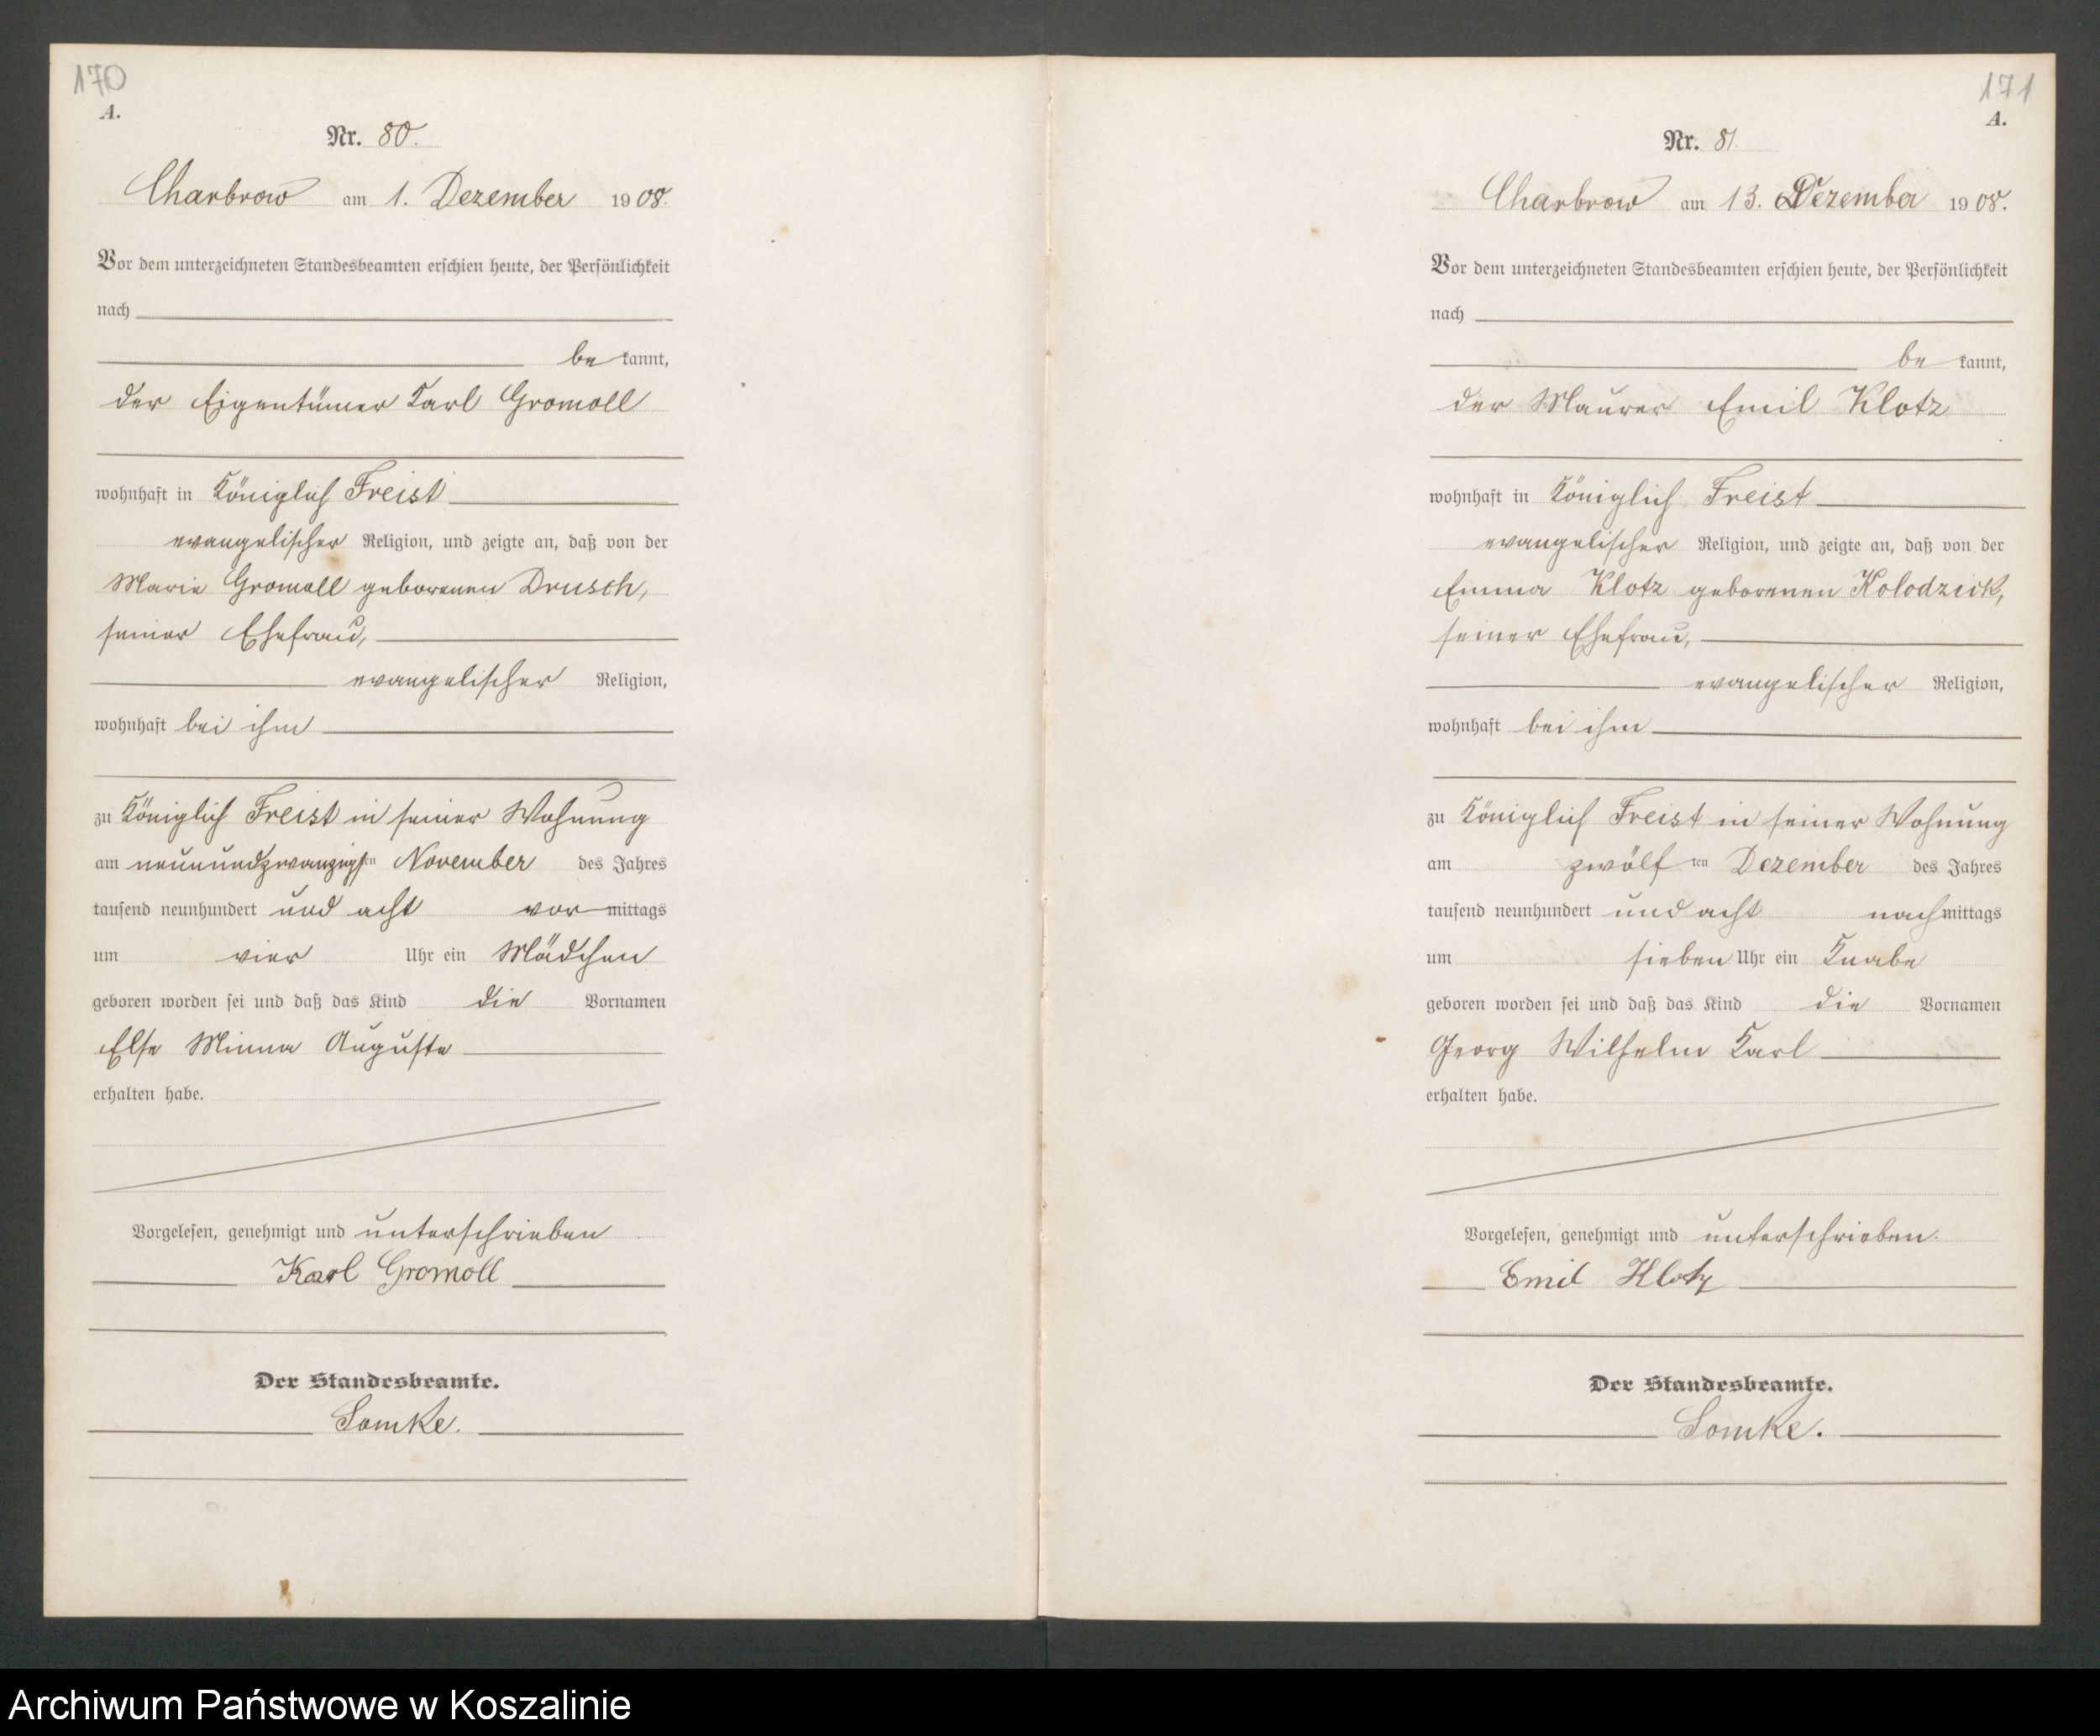 170
A.
Nr. 80.
Charbrow am 1. Dezember 1908.
Vor dem unterzeichneten Standesbeamten erschien heute, der Persönlichkeit
nach
be kannt,
der Eigentümer Karl Gromoll
wohnhaft in Königlich Freist
evangelischer Religion, und zeigte an, daß von der
Marie Gromoll geborenen Drusch,
seiner Ehefrau,
evangelischer Religion,
wohnhaft bei ihm
zu Königlich Freist in seiner Wohnung
am neunundzwanzigsten November des Jahres
tausend neunhundert und acht vor mittags
um vier Uhr ein Mädchen
geboren worden sei und daß das Kind die Vornamen
Else Minna Auguste
erhalten habe.
Vorgelesen, genehmigt und unterschrieben
Karl Gromoll
Der Standesbeamte.
171
A.
Nr. 81.
Charbrow am 13. Dezember 1908.
Vor dem unterzeichneten Standesbeamten erschien heute, der Persönlichkeit
nach
be kannt,
der Maurer Emil Klotz
wohnhaft in Königlich Freist
evangelischer Religion, und zeigte an, daß von der
Emma Klotz geborenen Kolodzick,
seiner Ehefrau,
evangelischer Religion,
wohnhaft bei ihm
zu Königlich Freist in seiner Wohnung
am zwölf ten Dezember des Jahres
tausend neunhundert und acht nachmittags
um sieben Uhr ein Knabe
geboren worden sei und daß das Kind die Vornamen
Georg Wilhelm Karl
erhalten habe.
Vorgelesen, genehmigt und unterschrieben.
Emil Klotz
Der Standesbeamte.
Archiwum Państwowe w Koszalinie